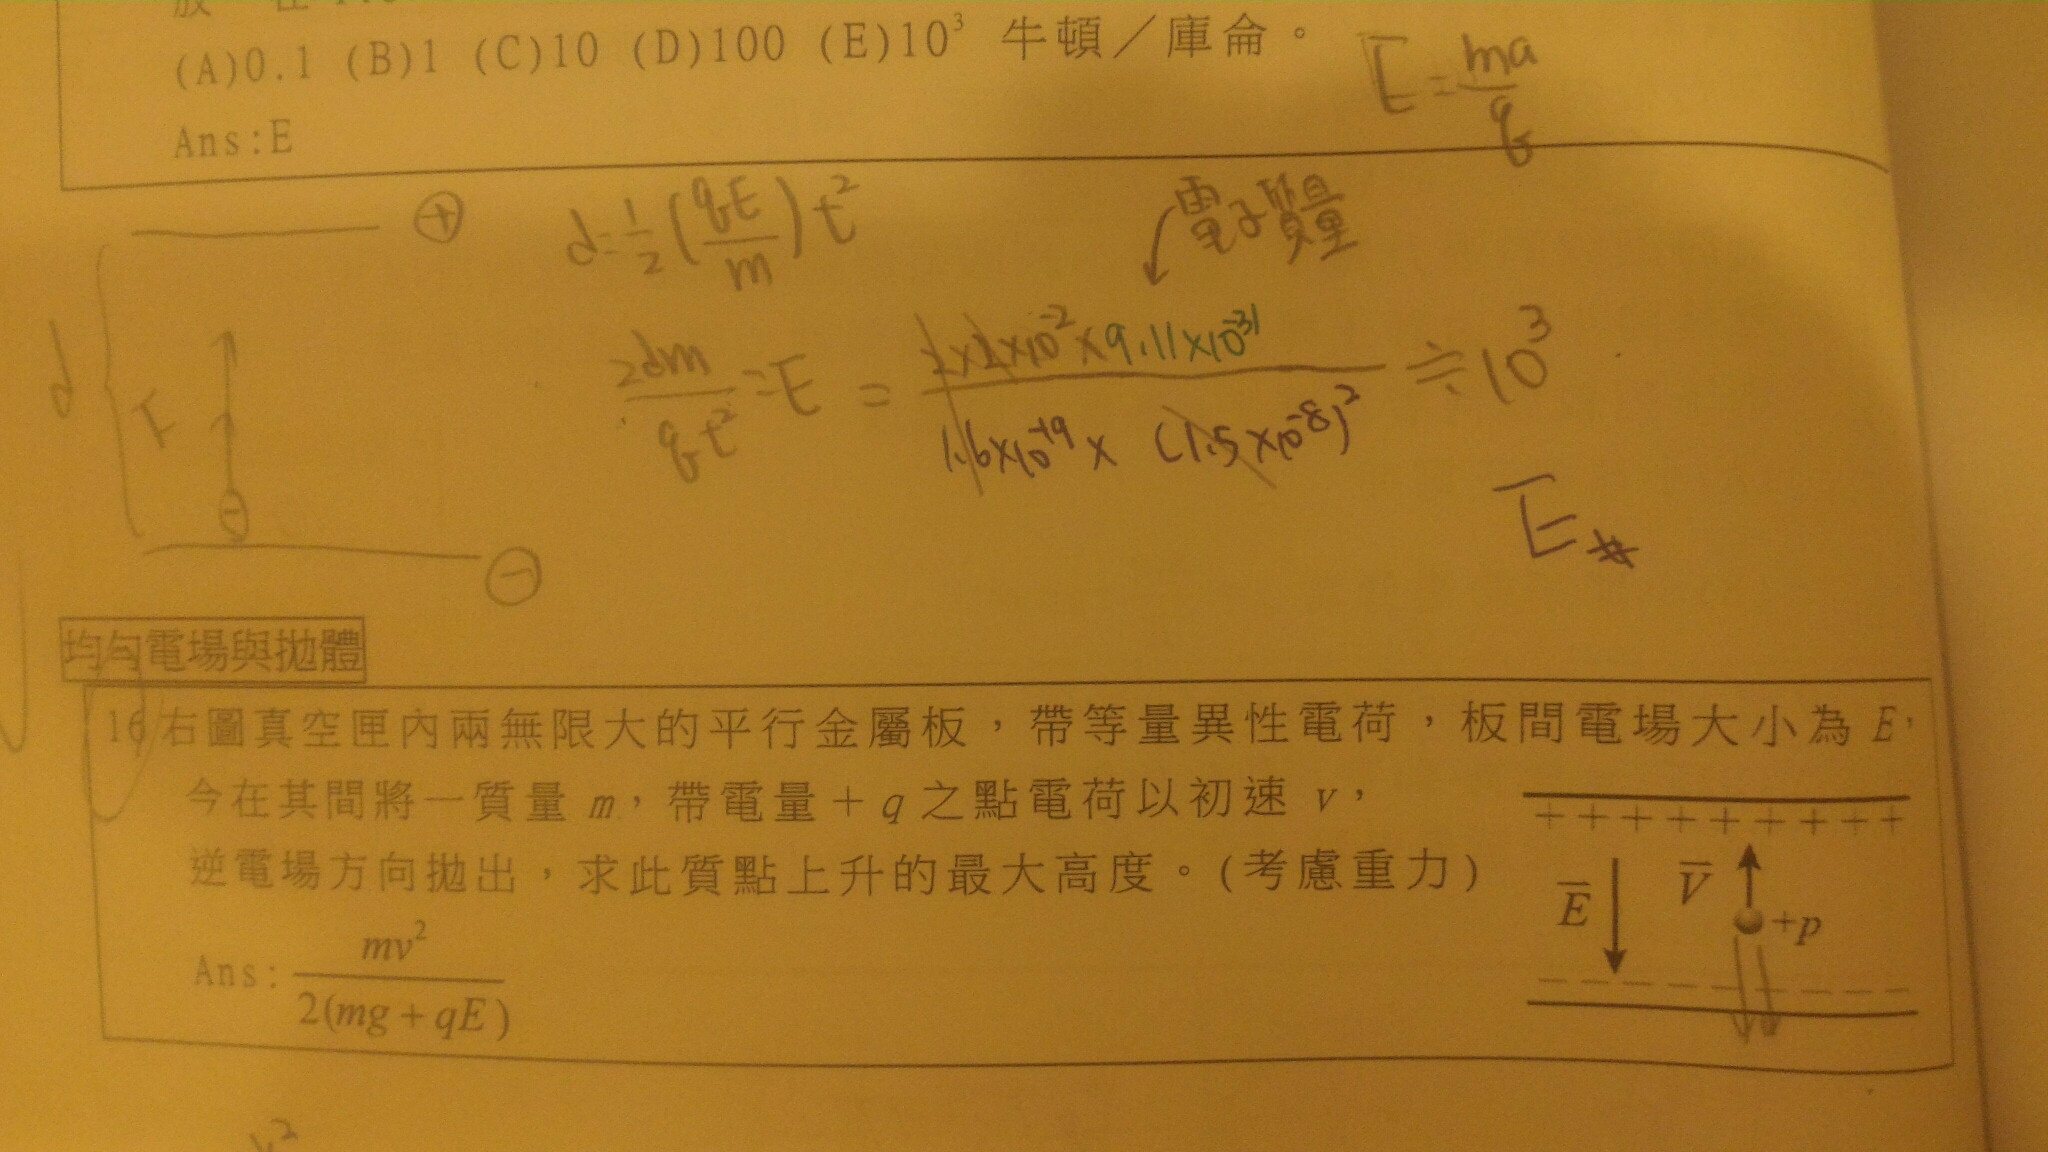 (A)0.1 (B)1 (C)10 (D)100 (E)10³ 牛頓／庫侖。
Ans:E
E=ma/q
⊕
d=½(qE/m)t²
電子質量
d
F
2dm/qt²=E=2×2×10⁻²×9.11×10⁻³¹/1.6×10⁻¹⁹×(1.5×10⁻⁸)²≑10³
⊖
⊖
E
均勻電場與拋體
16 右圖真空匣內兩無限大的平行金屬板，帶等量異性電荷，板間電場大小為 E，
今在其間將一質量 m，帶電量＋q 之點電荷以初速 v，
逆電場方向拋出，求此質點上升的最大高度。(考慮重力)
Ans: mv²/2(mg+qE)
+ + + + + + + + +
E
V
+p